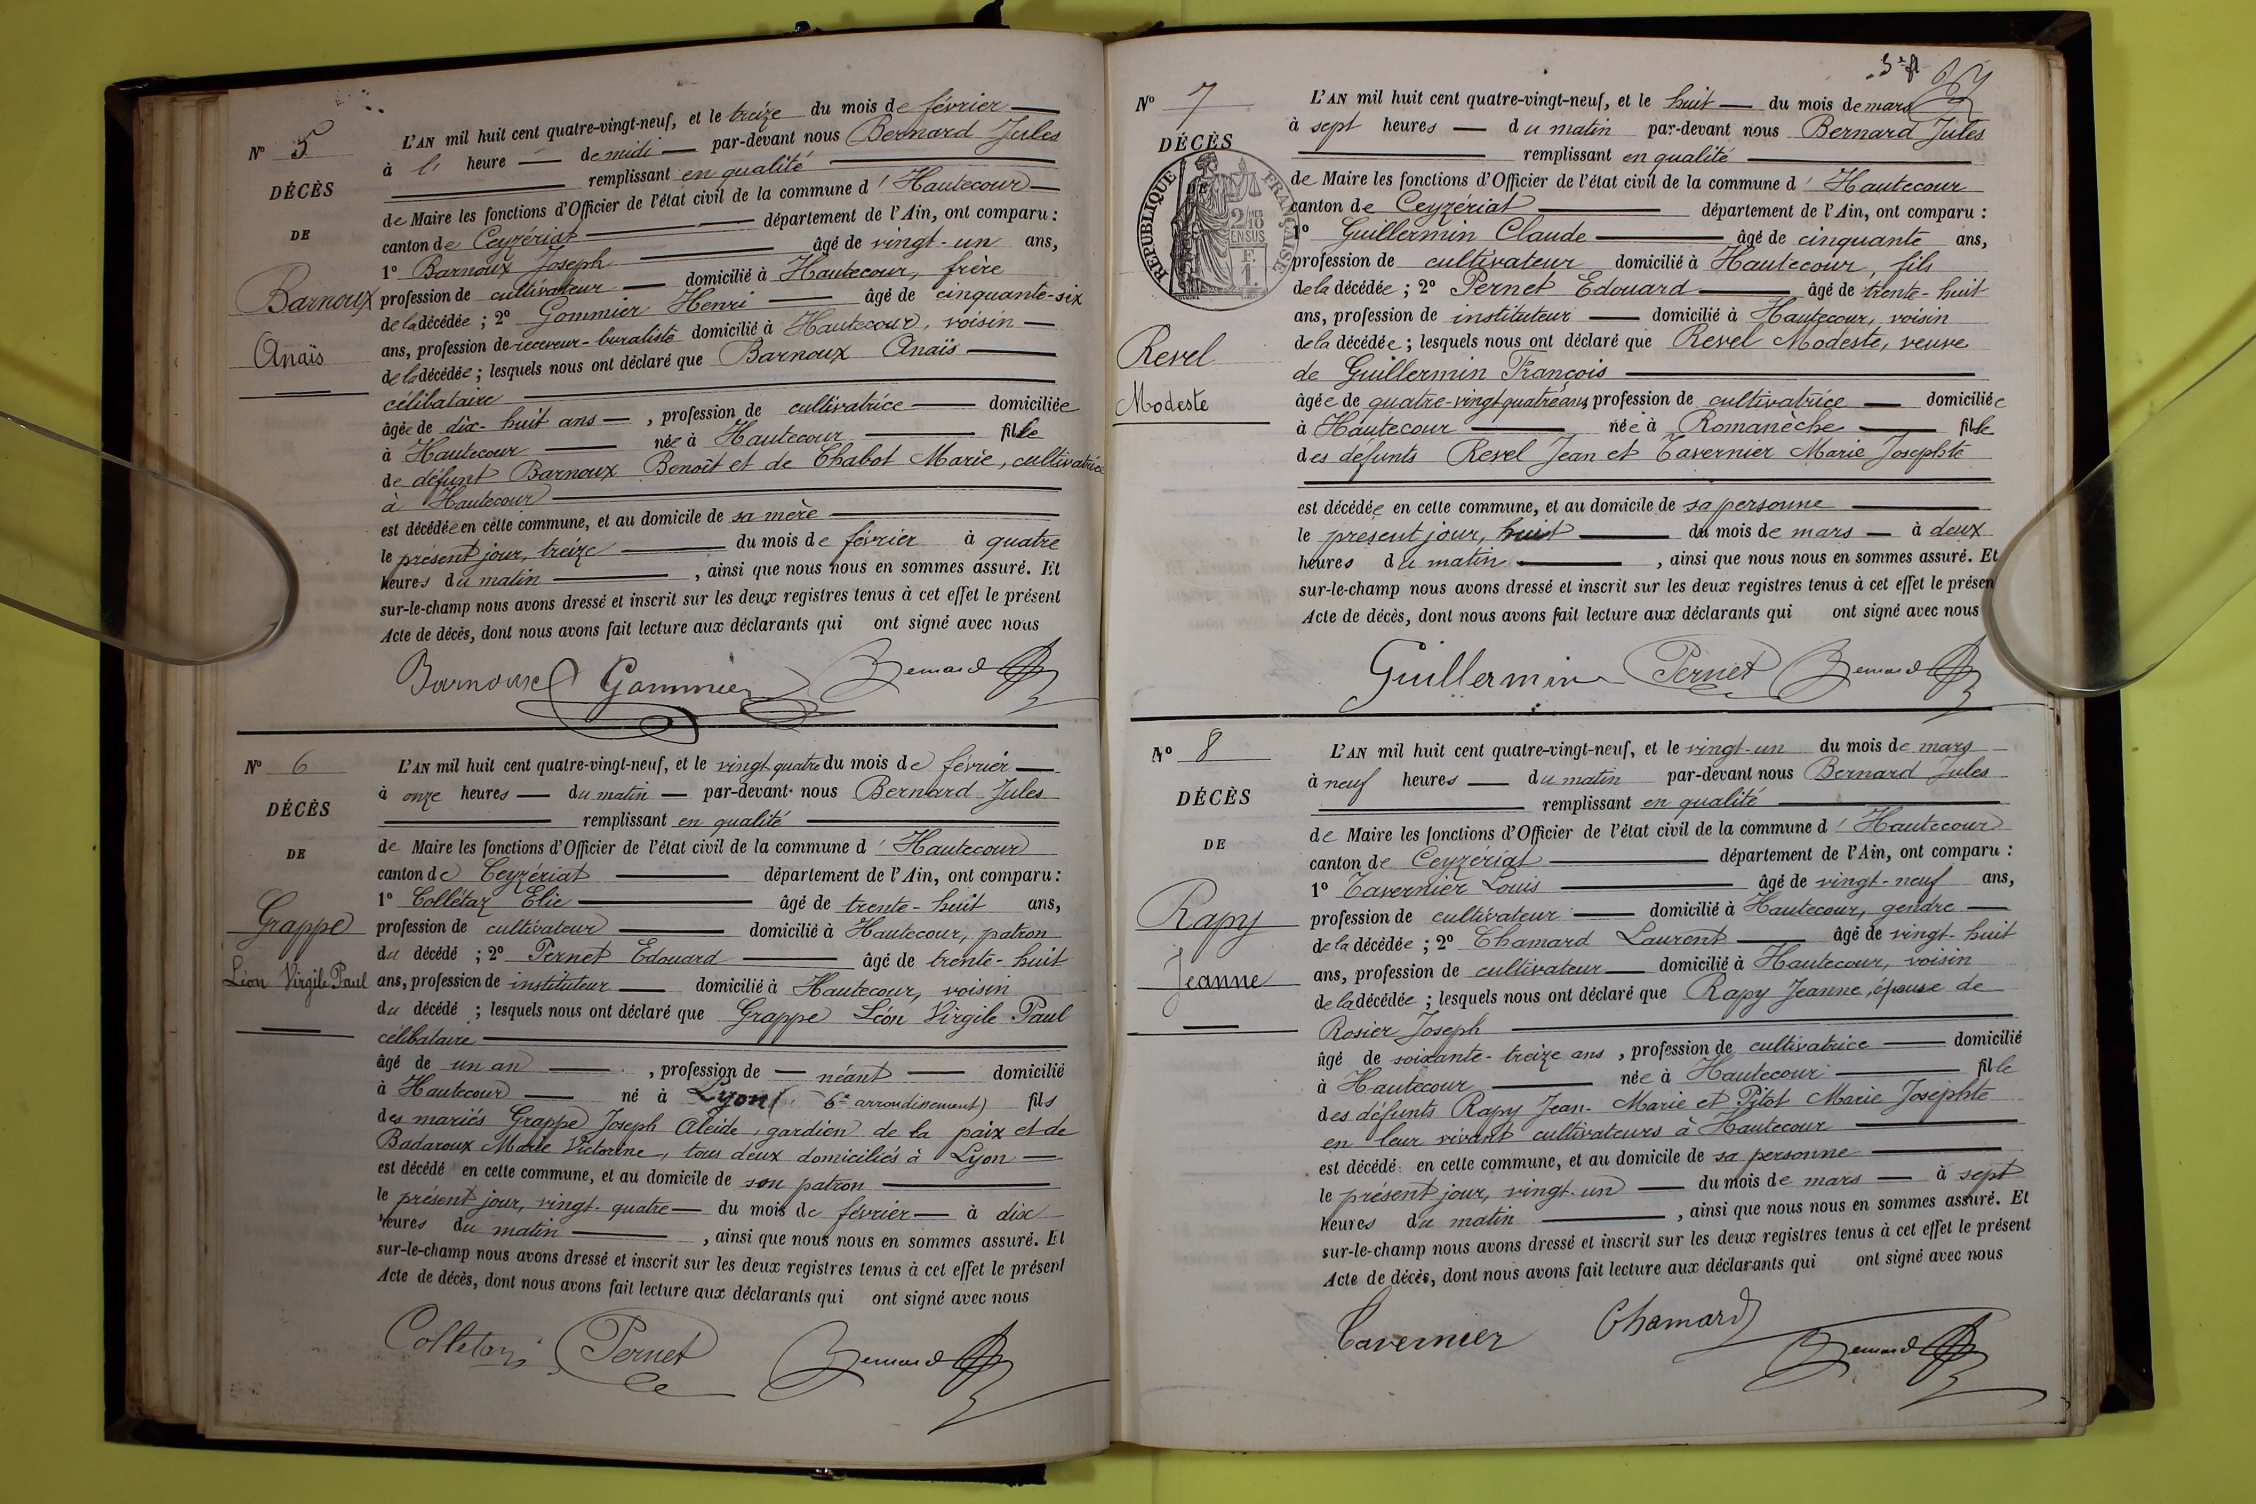 N° 5
DÉCÈS
DE
Barnoux
Anaïs
L'AN mil huit cent quatre-vingt-neuf, et le treize du mois de février
à l' heure de midi par-devant nous Bernard Jules
remplissant en qualité
de Maire les fonctions d'Officier de l'état civil de la commune d'Hautecour
canton de Ceyzériat département de l'Ain, ont comparu :
1° Barnoux Joseph âgé de vingt-un ans,
profession de cultivateur domicilié à Hautecour, frère
de la décédée ; 2° Gommier Henri âgé de cinquante-six
ans, profession de receveur-buraliste domicilié à Hautecour, voisin
de la décédée ; lesquels nous ont déclaré que Barnoux Anaïs
célibataire
âgée de dix-huit ans , profession de cultivatrice domiciliée
à Hautecour née à Hautecour fille
de défunt Barnoux Benoît et de Chabot Marie, cultivatrice
à Hautecour
est décédée en cette commune, et au domicile de sa mère
le présent jour, treize du mois de février à quatre
heures du matin , ainsi que nous nous en sommes assuré. Et
sur-le-champ nous avons dressé et inscrit sur les deux registres tenus à cet effet le présent
Acte de décès, dont nous avons fait lecture aux déclarants qui ont signé avec nous
Barnoux Gommier Bernard
N° 6
DÉCÈS
DE
Grappe
Léon Virgile Paul
L'AN mil huit cent quatre-vingt-neuf, et le vingt quatre du mois de février
à onze heures du matin par-devant nous Bernard Jules
remplissant en qualité
de Maire les fonctions d'Officier de l'état civil de la commune d'Hautecour
canton de Ceyzériat département de l'Ain, ont comparu :
1° Collétaz Elie âgé de trente-huit ans,
profession de cultivateur domicilié à Hautecour, patron
du décédé ; 2° Pernet Edouard âgé de trente-huit
ans, profession de instituteur domicilié à Hautecour, voisin
du décédé ; lesquels nous ont déclaré que Grappe Léon Virgile Paul
célibataire
âgé de un an , profession de néant domicilié
à Hautecour né à Lyon (6e arrondissement) fils
des mariés Grappe Joseph Aleide, gardien de la paix et de
Badaroux Marie Victorine, tous deux domiciliés à Lyon
est décédé en cette commune, et au domicile de son patron
le présent jour, vingt-quatre du mois de février à dix
heures du matin , ainsi que nous nous en sommes assuré. Et
sur-le-champ nous avons dressé et inscrit sur les deux registres tenus à cet effet le présent
Acte de décès, dont nous avons fait lecture aux déclarants qui ont signé avec nous
Colletaz Pernet Bernard
3e f
N° 7
DÉCÈS
RÉPUBLIQUE FRANÇAISE
2/10 EN SUS
F. 1.
Revel
Modeste
L'AN mil huit cent quatre-vingt-neuf, et le huit du mois de mars
à sept heures du matin par-devant nous Bernard Jules
remplissant en qualité
de Maire les fonctions d'Officier de l'état civil de la commune d'Hautecour
canton de Ceyzériat département de l'Ain, ont comparu :
1° Guillermin Claude âgé de cinquante ans,
profession de cultivateur domicilié à Hautecour, fils
de la décédée ; 2° Pernet Edouard âgé de trente-huit
ans, profession de instituteur domicilié à Hautecour, voisin
de la décédée ; lesquels nous ont déclaré que Revel Modeste, veuve
de Guillermin François
âgée de quatre-vingt quatre ans profession de cultivatrice domiciliée
à Hautecour née à Romanèche fille
des défunts Revel Jean et Tavernier Marie Josephte
est décédée en cette commune, et au domicile de sa personne
le présent jour, huit du mois de mars à deux
heures du matin , ainsi que nous nous en sommes assuré. Et
sur-le-champ nous avons dressé et inscrit sur les deux registres tenus à cet effet le présen
Acte de décès, dont nous avons fait lecture aux déclarants qui ont signé avec nous
Guillermin Pernet Bernard
N° 8
DÉCÈS
DE
Rapy
Jeanne
L'AN mil huit cent quatre-vingt-neuf, et le vingt-un du mois de mars
à neuf heures du matin par-devant nous Bernard Jules
remplissant en qualité
de Maire les fonctions d'Officier de l'état civil de la commune d'Hautecour
canton de Ceyzériat département de l'Ain, ont comparu :
1° Tavernier Louis âgé de vingt-neuf ans,
profession de cultivateur domicilié à Hautecour, gendre
de la décédée ; 2° Chamard Laurent âgé de vingt-huit
ans, profession de cultivateur domicilié à Hautecour, voisin
de la décédée ; lesquels nous ont déclaré que Rapy Jeanne, épouse de
Rosier Joseph
âgé de soixante-treize ans , profession de cultivatrice domicilié
à Hautecour née à Hautecour fille
des défunts Rapy Jean-Marie et Pitot Marie Josephte
en leur vivant cultivateurs à Hautecour
est décédé en cette commune, et au domicile de sa personne
le présent jour, vingt-un du mois de mars à sept
heures du matin , ainsi que nous nous en sommes assuré. Et
sur-le-champ nous avons dressé et inscrit sur les deux registres tenus à cet effet le présent
Acte de décès, dont nous avons fait lecture aux déclarants qui ont signé avec nous
Tavernier Chamard Bernard